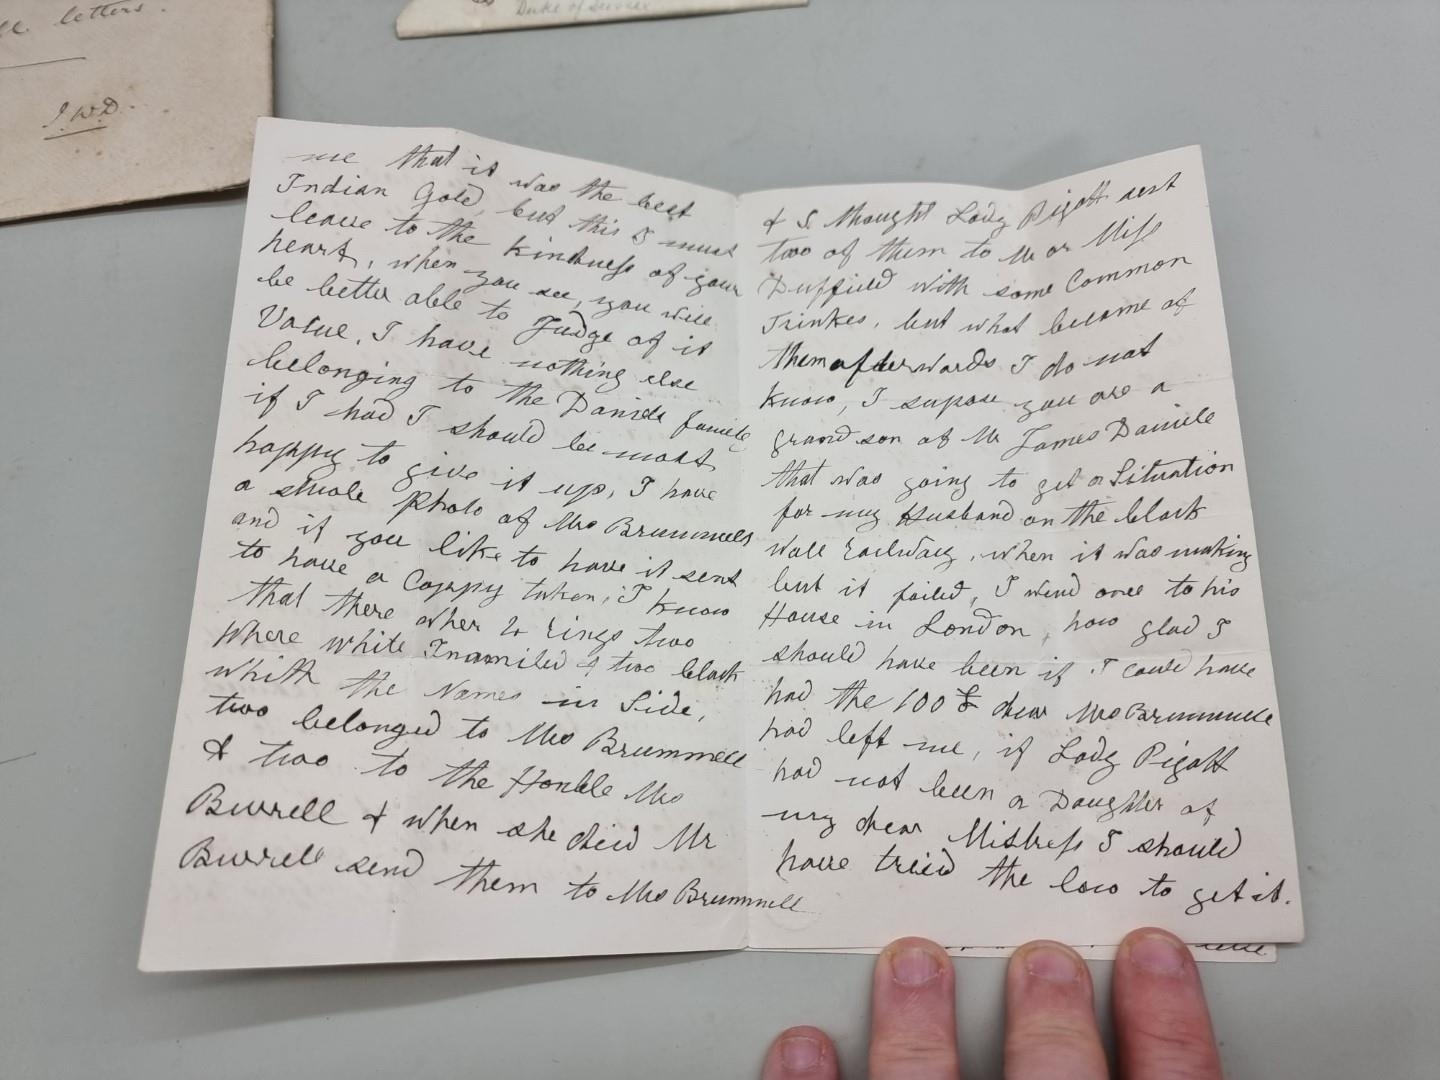 letters.
J.W.D.
Duke of Sussex
me that it was the best
Indian Gold, but this I must
leave to the kindness of your
heart, when you see, you will
be better able to Judge of it
Value, I have nothing else
belonging to the Daniels family
if I had I should be most
happy to give it up, I have
a smole Photo of Mrs Brummells
and if you like to have it sent
to have a Coppy taken, I know
that there wher 4 rings two
where white Inamiled & two black
whith the Names in Side,
two belonged to Mrs Brummell
& two to the Honble Mrs
Burrell & when she died Mr
Burrell send them to Mrs Brummell
& I thought Lady Pigott sent
two of them to Mr or Miss
Duffield with some Common
Trinkes, but what became of
them afterwards I do not
know, I supose you are a
grand son of Mr James Daniele
that was going to get a Situation
for my Husband on the black
wall railway, when it was making
but it failed, I wend once to his
House in London, how glad I
should have been if I could have
had the 100 £ dear Mrs Brummelle
had left me, if Lady Pigott
had not been a Daughter of
my dear Mistress I should
have treid the low to get it.